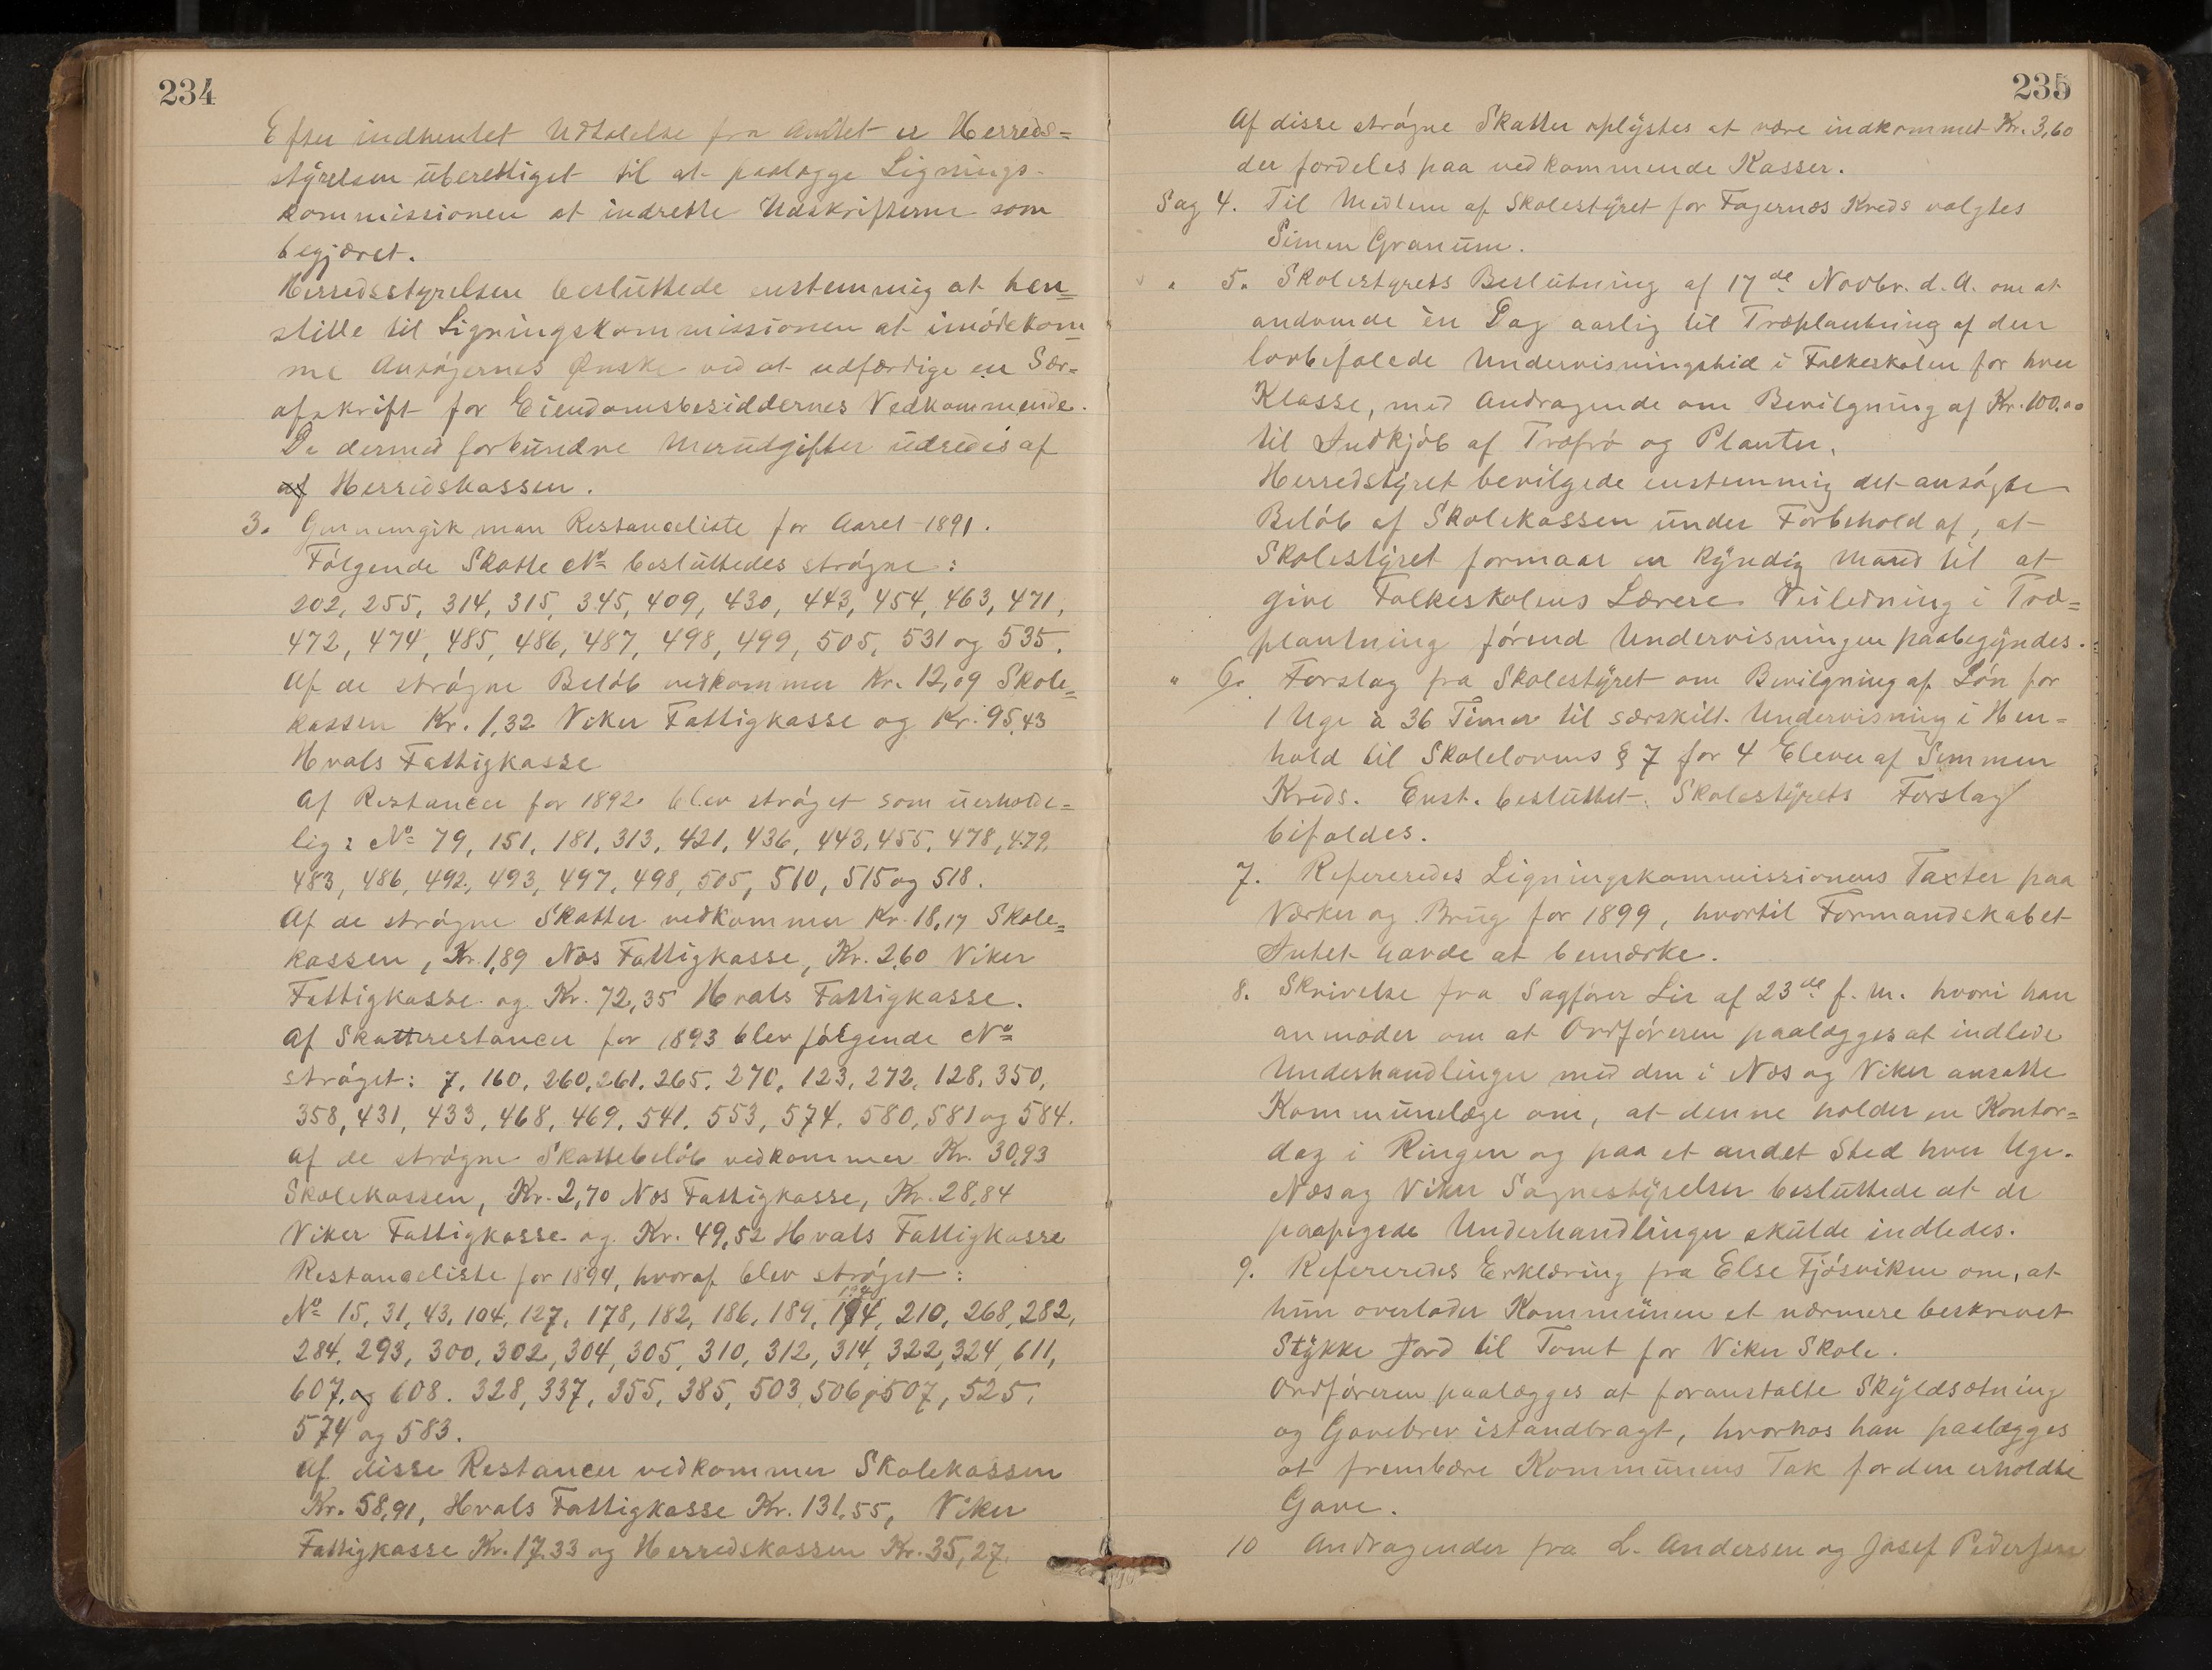 234
Efter indhentet Udtalelse fra Amtet er Herreds=
styrelsen uberettiget til at paalægge Lignings-
kommissionen at indrette Udskrifterne som
begjæret.
Herredsstyrelsen besluttede enstemmig at hen=
stille til Ligningskommissionen at imødekom=
me Ansøgernes Ønske ved at udfærdige en Sær=
afskrift for Eiendomsbesiddernes Vedkommende.
De dermed forbundne Merudgifter udredes af
af Herredskassen.
3. Gjennemgik man Restanceliste for Aaret 1891.
Følgende Skatte No besluttedes strøgne:
202, 255, 314, 315, 345, 409, 430, 443, 454, 463, 471,
472, 474, 485, 486, 487, 498, 499, 505, 531 og 535.
Af de strøgne Beløb vedkommer Kr. 12,09 Skole=
kassen Kr. 1,32 Viker Fattigkasse og Kr. 95,43
Hvals Fattigkasse
Af Restancer for 1892 blev strøget som uerholde=
lig: No 79, 151, 181, 313, 421, 436, 443, 455, 478, 479,
483, 486, 492, 493, 497, 498, 505, 510, 515 og 518.
Af de strøgne Skatter vedkommer Kr. 18,17 Skole=
kassen, Kr. 1,89 Næs Fattigkasse, Kr. 2,60 Viker
Fattigkasse og Kr. 72,35 Hvals Fattigkasse.
Af Skatterestancer for 1893 blev følgende No
strøget: 7, 160, 260, 261, 265, 270, 123, 272, 128, 350,
358, 431, 433, 468, 469, 541, 553, 574, 580, 581 og 584.
Af de strøgne Skattebeløb vedkommer Kr. 30,93
Skolekassen, Kr. 2,70 Næs Fattigkasse, Kr. 28,84
Viker Fattigkasse og Kr. 49,52 Hvals Fattigkasse
Restanceliste for 1894, hvoraf blev strøget:
194
No 15, 31, 43, 104, 127, 178, 182, 186, 189, 194, 210, 268, 282,
284, 293, 300, 302, 304, 305, 310, 312, 314, 322, 324, 611,
607, og 608. 328, 337, 355, 385, 503, 506, 507, 525,
574 og 583.
Af disse Restancer vedkommer Skolekassen
Kr. 58,91, Hvals Fattigkasse Kr. 131,55, Viker
Fattigkasse Kr. 17,33 og Herredskassen Kr. 35,27.
235
Af disse strøgne Skatter oplystes at være indkommet Kr. 3,60
der fordeles paa vedkommende Kasser.
Sag 4. Til Medlem af Skolestyret for Fagernæs Kreds valgtes
Simen Granum.
" 5. Skolestyrets Beslutning af 17de Novbr. d. A. om at
anvende èn Dag aarlig til Træplantning af den
lovbefalede Undervisningstid i Folkeskolen for hver
Klasse, med Andragende om Bevilgning af Kr. 100.00
til Indkjøb af Træfrø og Planter.
Herredstyret bevilgede enstemmig det ansøgte
Beløb af Skolekassen under Forbehold af, at
Skolestyret formaar en kyndig Mand til at
give Folkeskolens Lærere Veiledning i Træ=
plantning førend Undervisningen paabegyndes.
" 6. Forslag fra Skolestyret om Bevilgning af Løn for
1 Uge à 36 Timer til særskilt Undervisning i Hen=
hold til Skolelovens § 7 for 4 Elever af Semmen
Kreds. Enst. besluttet. Skolestyrets Forslag
bifaldes.
7. Refereredes Ligningskommissionens Taxter paa
Værker og Brug for 1899, hvortil Formandskabet
Intet havde at bemærke.
8. Skrivelse fra Sagfører Lie af 23de f. M. hvori han
anmoder om at Ordføreren paalægges at indlede
Underhandlinger med den i Næs og Viker ansatte
Kommunelæge om, at denne holder en Kontor=
dag i Ringen og paa et andet Sted hver Uge.
Næs og Viker Sognestyrelser besluttede at de
paapegede Underhandlinger skulde indledes.
9. Refereredes Erklæring fra Else Fjøsviken om, at
hun overlader Kommunen et nærmere beskrevet
Stykke Jord til Tomt for Viker Skole.
Ordføreren paalægges at foranstalte Skyldsætning
og Gavebrev istandbragt, hvorhos han paalægges
at frembære Kommunens Tak for den erholdte
Gave.
10 Andragender fra L. Andersen og Josef Pedersen